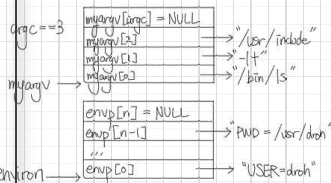 argc==3
myargv[argc] = NULL
myargv[2]
"/usr/include"
myargv[1]
"-lt"
myargv
myargv[0]
"/bin/ls"
envp[n] = NULL
envp[n-1]
"PWD = /usr/droh"
...
environ
envp[0]
"USER=droh"